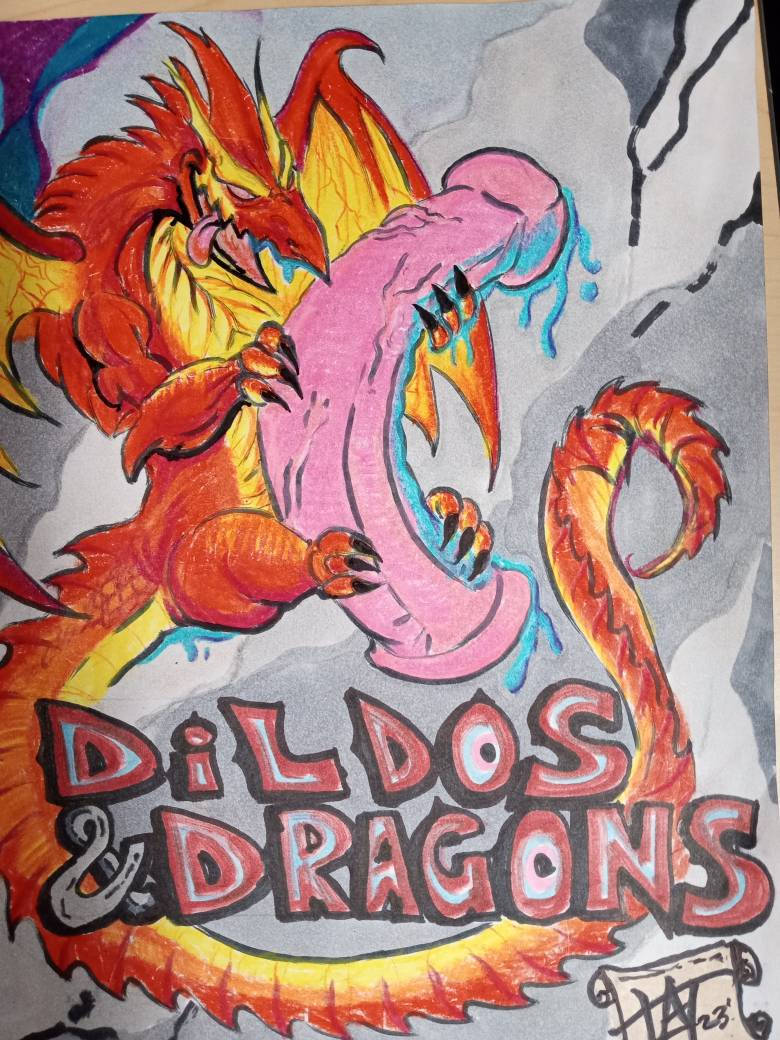 DiLDOS
& DRAGONS
23'